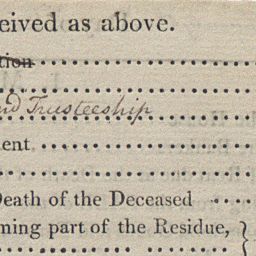 ceived as above.
tion
and Trusteeship
ent
Death of the Deceased
ming part of the Residue,